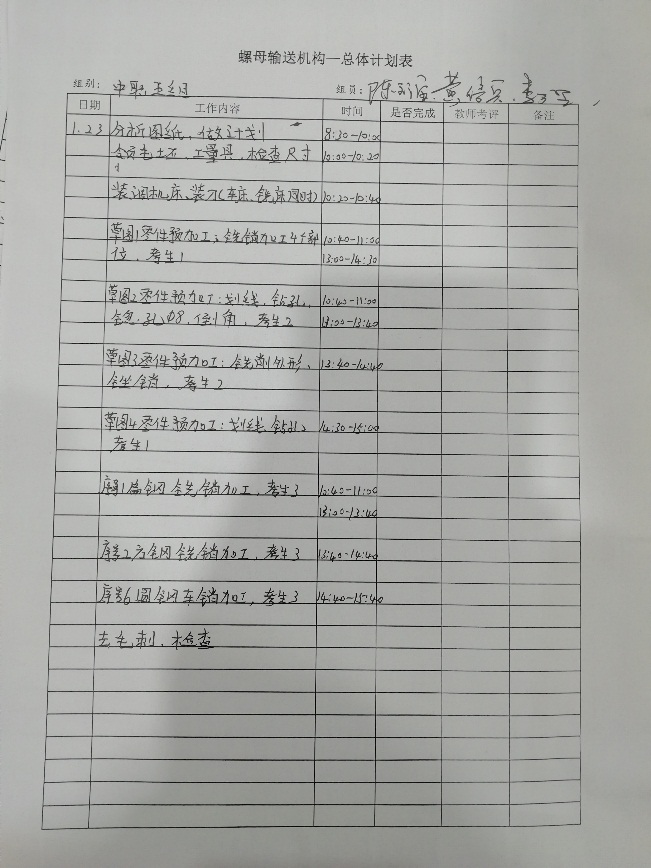 螺母输送机构—总体计划表
组别: 中职五组 组员: 陈 黄信兵. 李
日期 工作内容 时间 是否完成 教师考评 备注
1.23 分析图纸、做计划 8:30-10:00
领毛坯、工量具、检查尺寸 10:00-10:20
装调机床、装刀(车床、铣床同时) 10:20-10:40
草图1零件预加工:铣销加工4个部 10:40-11:00
位、考生1 13:00-14:30
草图2零件预加工:划线、钻孔、 10:40-11:00
铰孔Φ8、倒角、考生2 13:00-13:40
草图3零件预加工:铣削外形、 13:40-14:40
钻销、考生2
草图4零件预加工:划线、钻孔 14:30-15:00
考生1
序号1扁钢铣销加工、考生3 10:40-11:00
13:00-13:40
序号2方钢铣销加工、考生3 13:40-14:40
序号6圆钢车销加工、考生3 14:40-15:40
去毛刺、检查